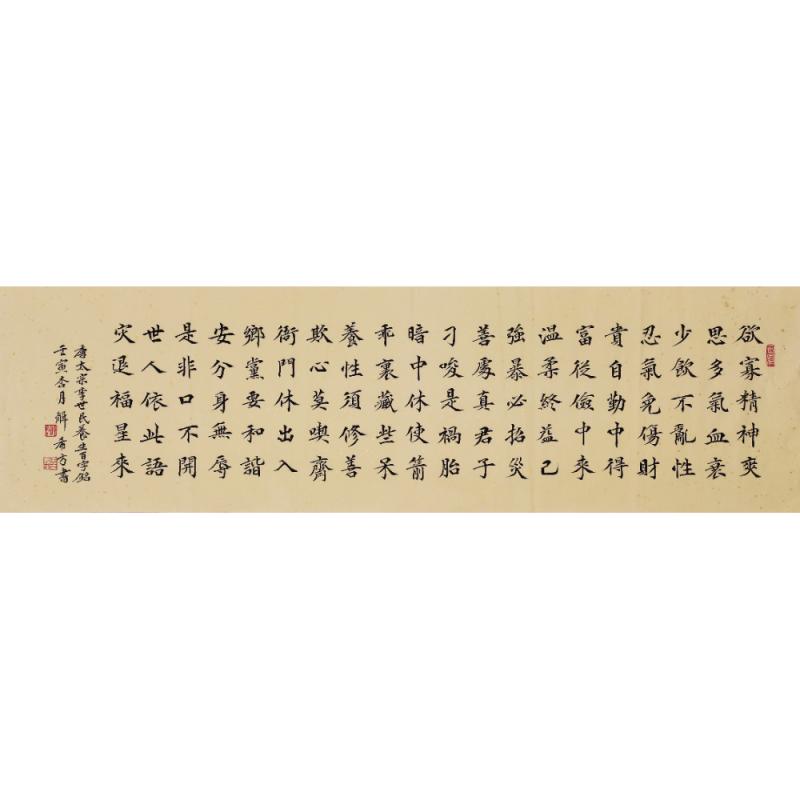 欲寡精神爽
思多氣血衰
少飲不亂性
忍氣免傷財
貴自勤中得
富從儉中來
温柔終益己
強暴必招災
善處真君子
刁唆是禍胎
暗中休使箭
乖裏藏些呆
養性須修善
欺心莫喫齋
衙門休出入
鄉黨要和諧
安分身無辱
是非口不開
世人依此語
灾退福星來
唐太宗李世民養生百字銘
壬寅杏月 解孝方書